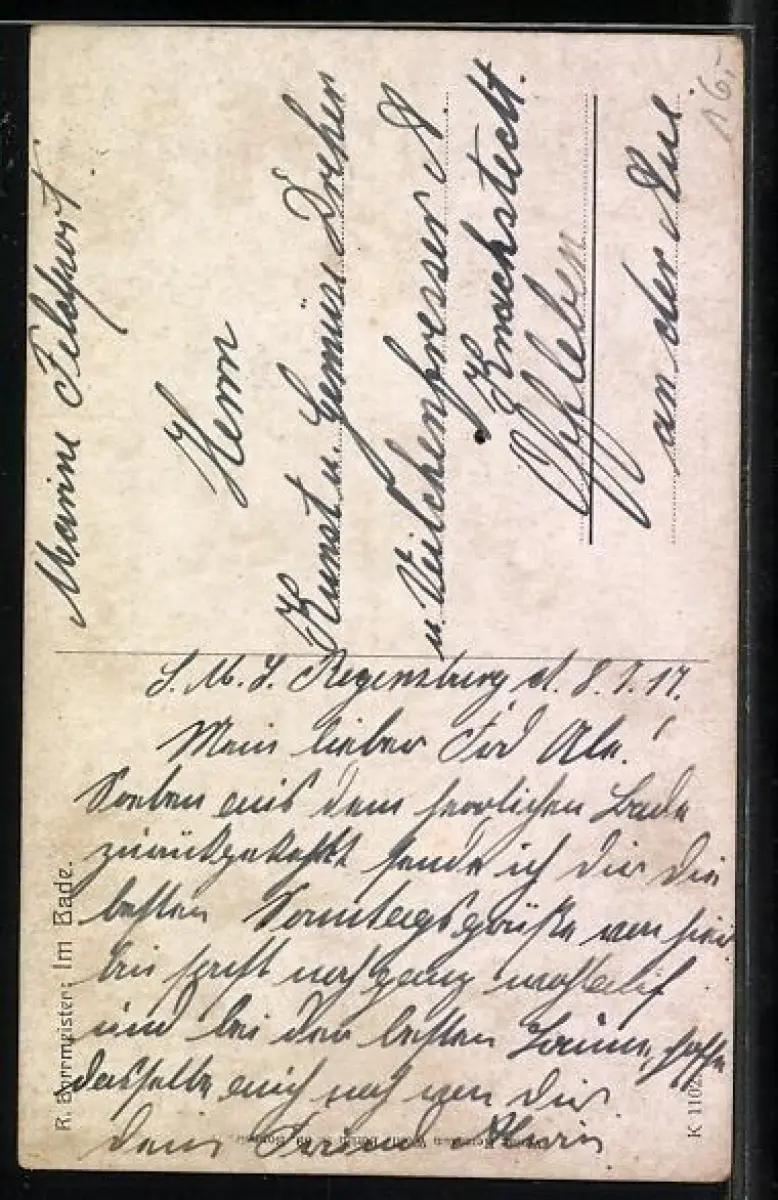 Marine Feldpost.
Herrn
Kunst u. Gemüse Dreher
u. Veilchenfresser A
Knochstedt.
Offleben
an der Aue.
16,-
S. M. S. Regensburg d. 8. 7. 17.
Mein lieber
Soeben aus dem herrlichen Bade
zurückgekehrt sende ich dir die
besten Sonntagsgrüße von hier
bin sonst noch ganz wohlauf
und bei der besten Laune, hoffe
dasselbe auch noch von dir
dein Freund Alwin
R. Borrmeister: Im Bade.
K 1102